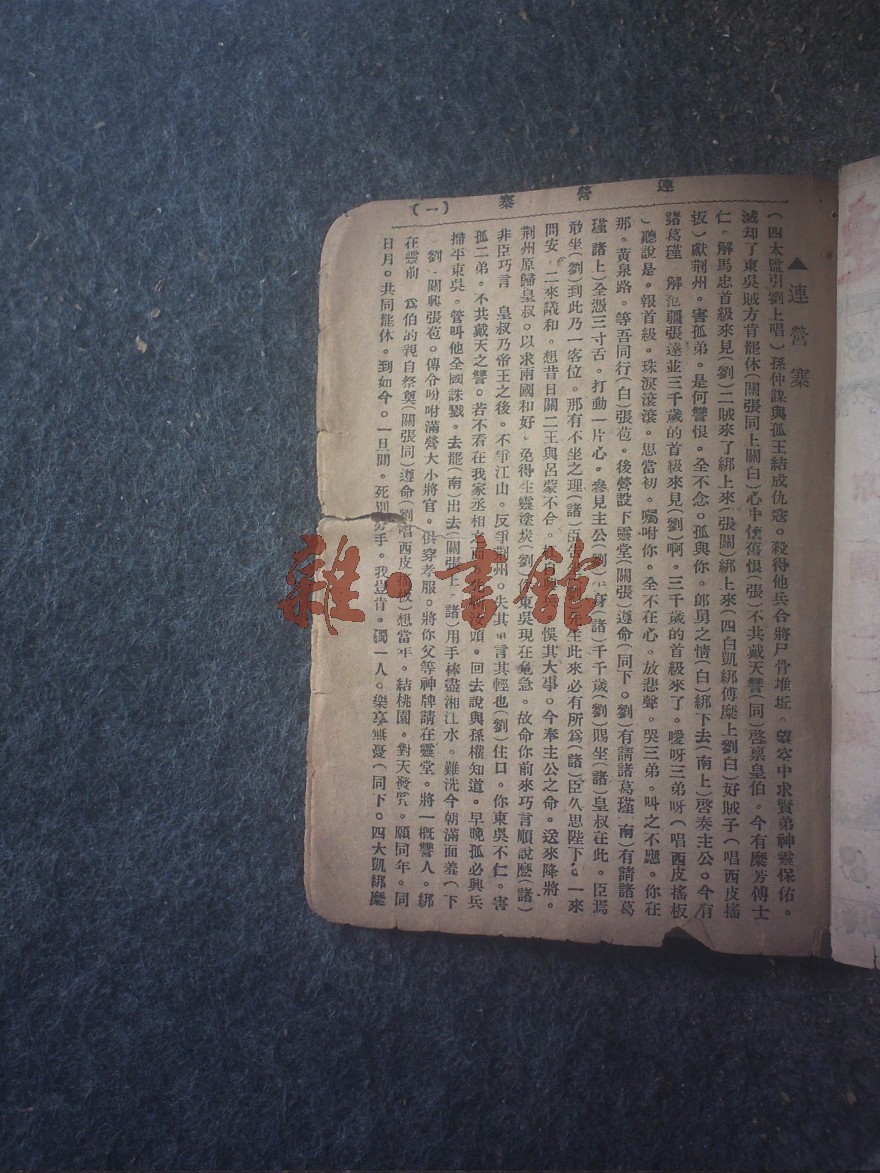 連營寨
(一)
▲連營寨
(四太監引劉上唱)孫仲謀與孤王結成仇寇。殺得他兵合將尸骨堆坵。望空中求賢弟神靈保佑。
滅却了東吳賊方肯罷休(關張同上關白)心中懷舊恨(張)不共戴天讐(同)啓禀皇伯。今有糜芳傅士
仁。解馬忠首級來見(劉)二賊來了綁上來(張關)綁上來(四白凱綁傅糜上劉白)好賊子(唱西皮搖
板)獻荆州。害孤弟。是何讐恨。全不念。孤與你。郎舅之情(白)綁下去(南上)啓奏主公。今有
諸葛瑾 解范疆張達並三千歲的首級來見(劉)啊。三千歲的首級來了。噯呀三弟呀(唱西皮搖板
)聽說是。報首級。珠淚滾滾。思當初。囑咐你。全不在心。放悲聲。哭三弟。叫之不應。你在
那。黃泉路。等吾同行(白)張苞。後營設下靈堂(關張)遵命(同下。劉)有請諸葛瑾(南)有請諸葛
瑾(諸上)全憑三寸舌。打動一片心。參見主公(劉)平身(諸)千千歲(劉)賜坐(諸)皇叔在此。臣焉
敢坐(劉)到此乃一客位。那有不坐之理(諸)臣 先生此來必有所爲(諸)臣久思陛下。一來
問安。二來議和。想昔日關二王與呂蒙不合。 悞其大事。今奉主公之命。送來降將。
荆州原歸皇叔。以求兩國和好。免得生靈塗炭(劉)你東吳現在危急。故命你前來巧言順說麽(諸)
非臣巧言 皇叔乃帝王之後。不爭江山。反爭荆州。失其 言其輕也(劉)住口。你東吳不仁。害
孤二弟。不共戴天之讐。若不看在我家丞相之面 頭。回去說與孫權知道。早晚孤必興兵
掃平東吳。管叫他全國誅戮。去罷(南)出去(關張上 諸)用手捧盡湘江水。難洗今朝滿面羞(下
劉 關興張苞。傳令吩咐滿營大小將官。俱穿孝服。將你父等神牌請在靈堂。將一概讐人。綁
在靈前 爲伯的親自祭奠(關張同)遵命(劉唱西皮搖板)想當年。結桃園。對天發咒。願同年。同
日月。共同罷休。到如今。一旦間。死別分手。我豈肯。獨一人。樂享無憂(同下。四大凱綁糜
雜·書館